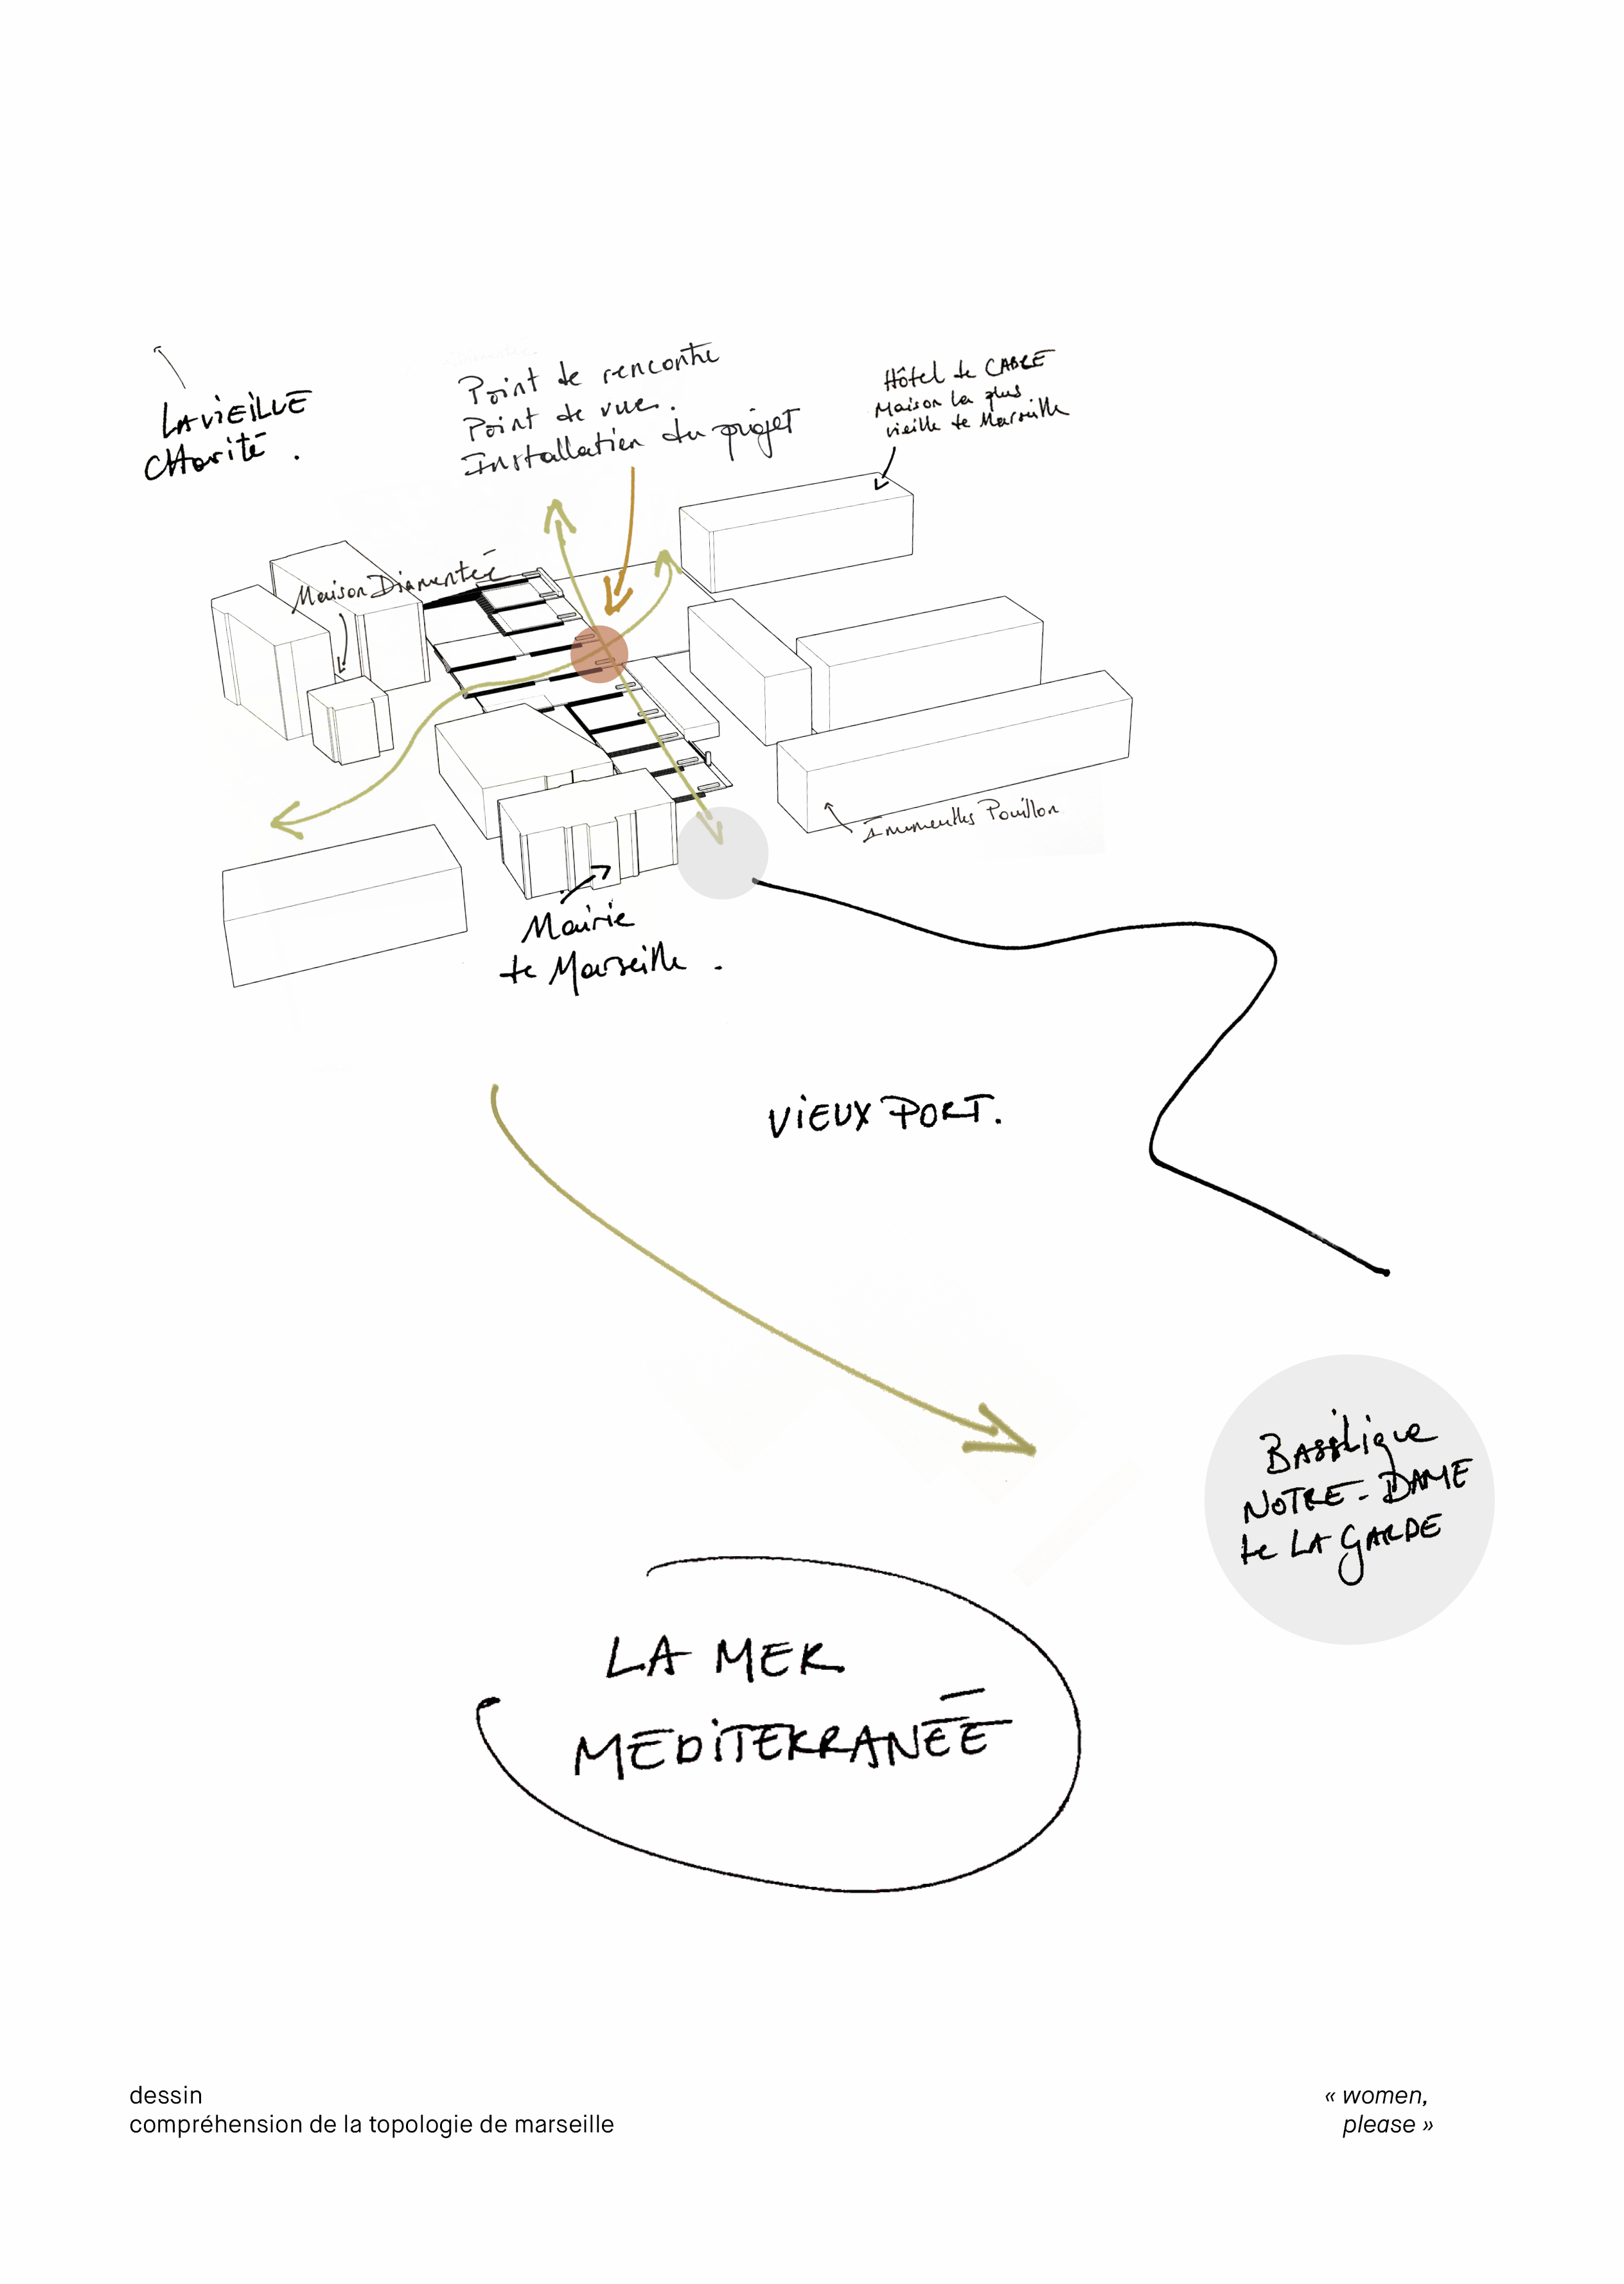 LA VIEILLE
CHARITÉ .
Point de rencontre
Point de vue.
Installation du projet
Hôtel de CABRE
Maison la plus
vieille de Marseille
Maison Diamentée
Immeubles Pouillon
Mairie
de Marseille .
VIEUX PORT.
BASSILIQUE
NOTRE-DAME
de LA GARDE
LA MER
MEDITERRANÉE
dessin
compréhension de la topologie de marseille
« women,
please »